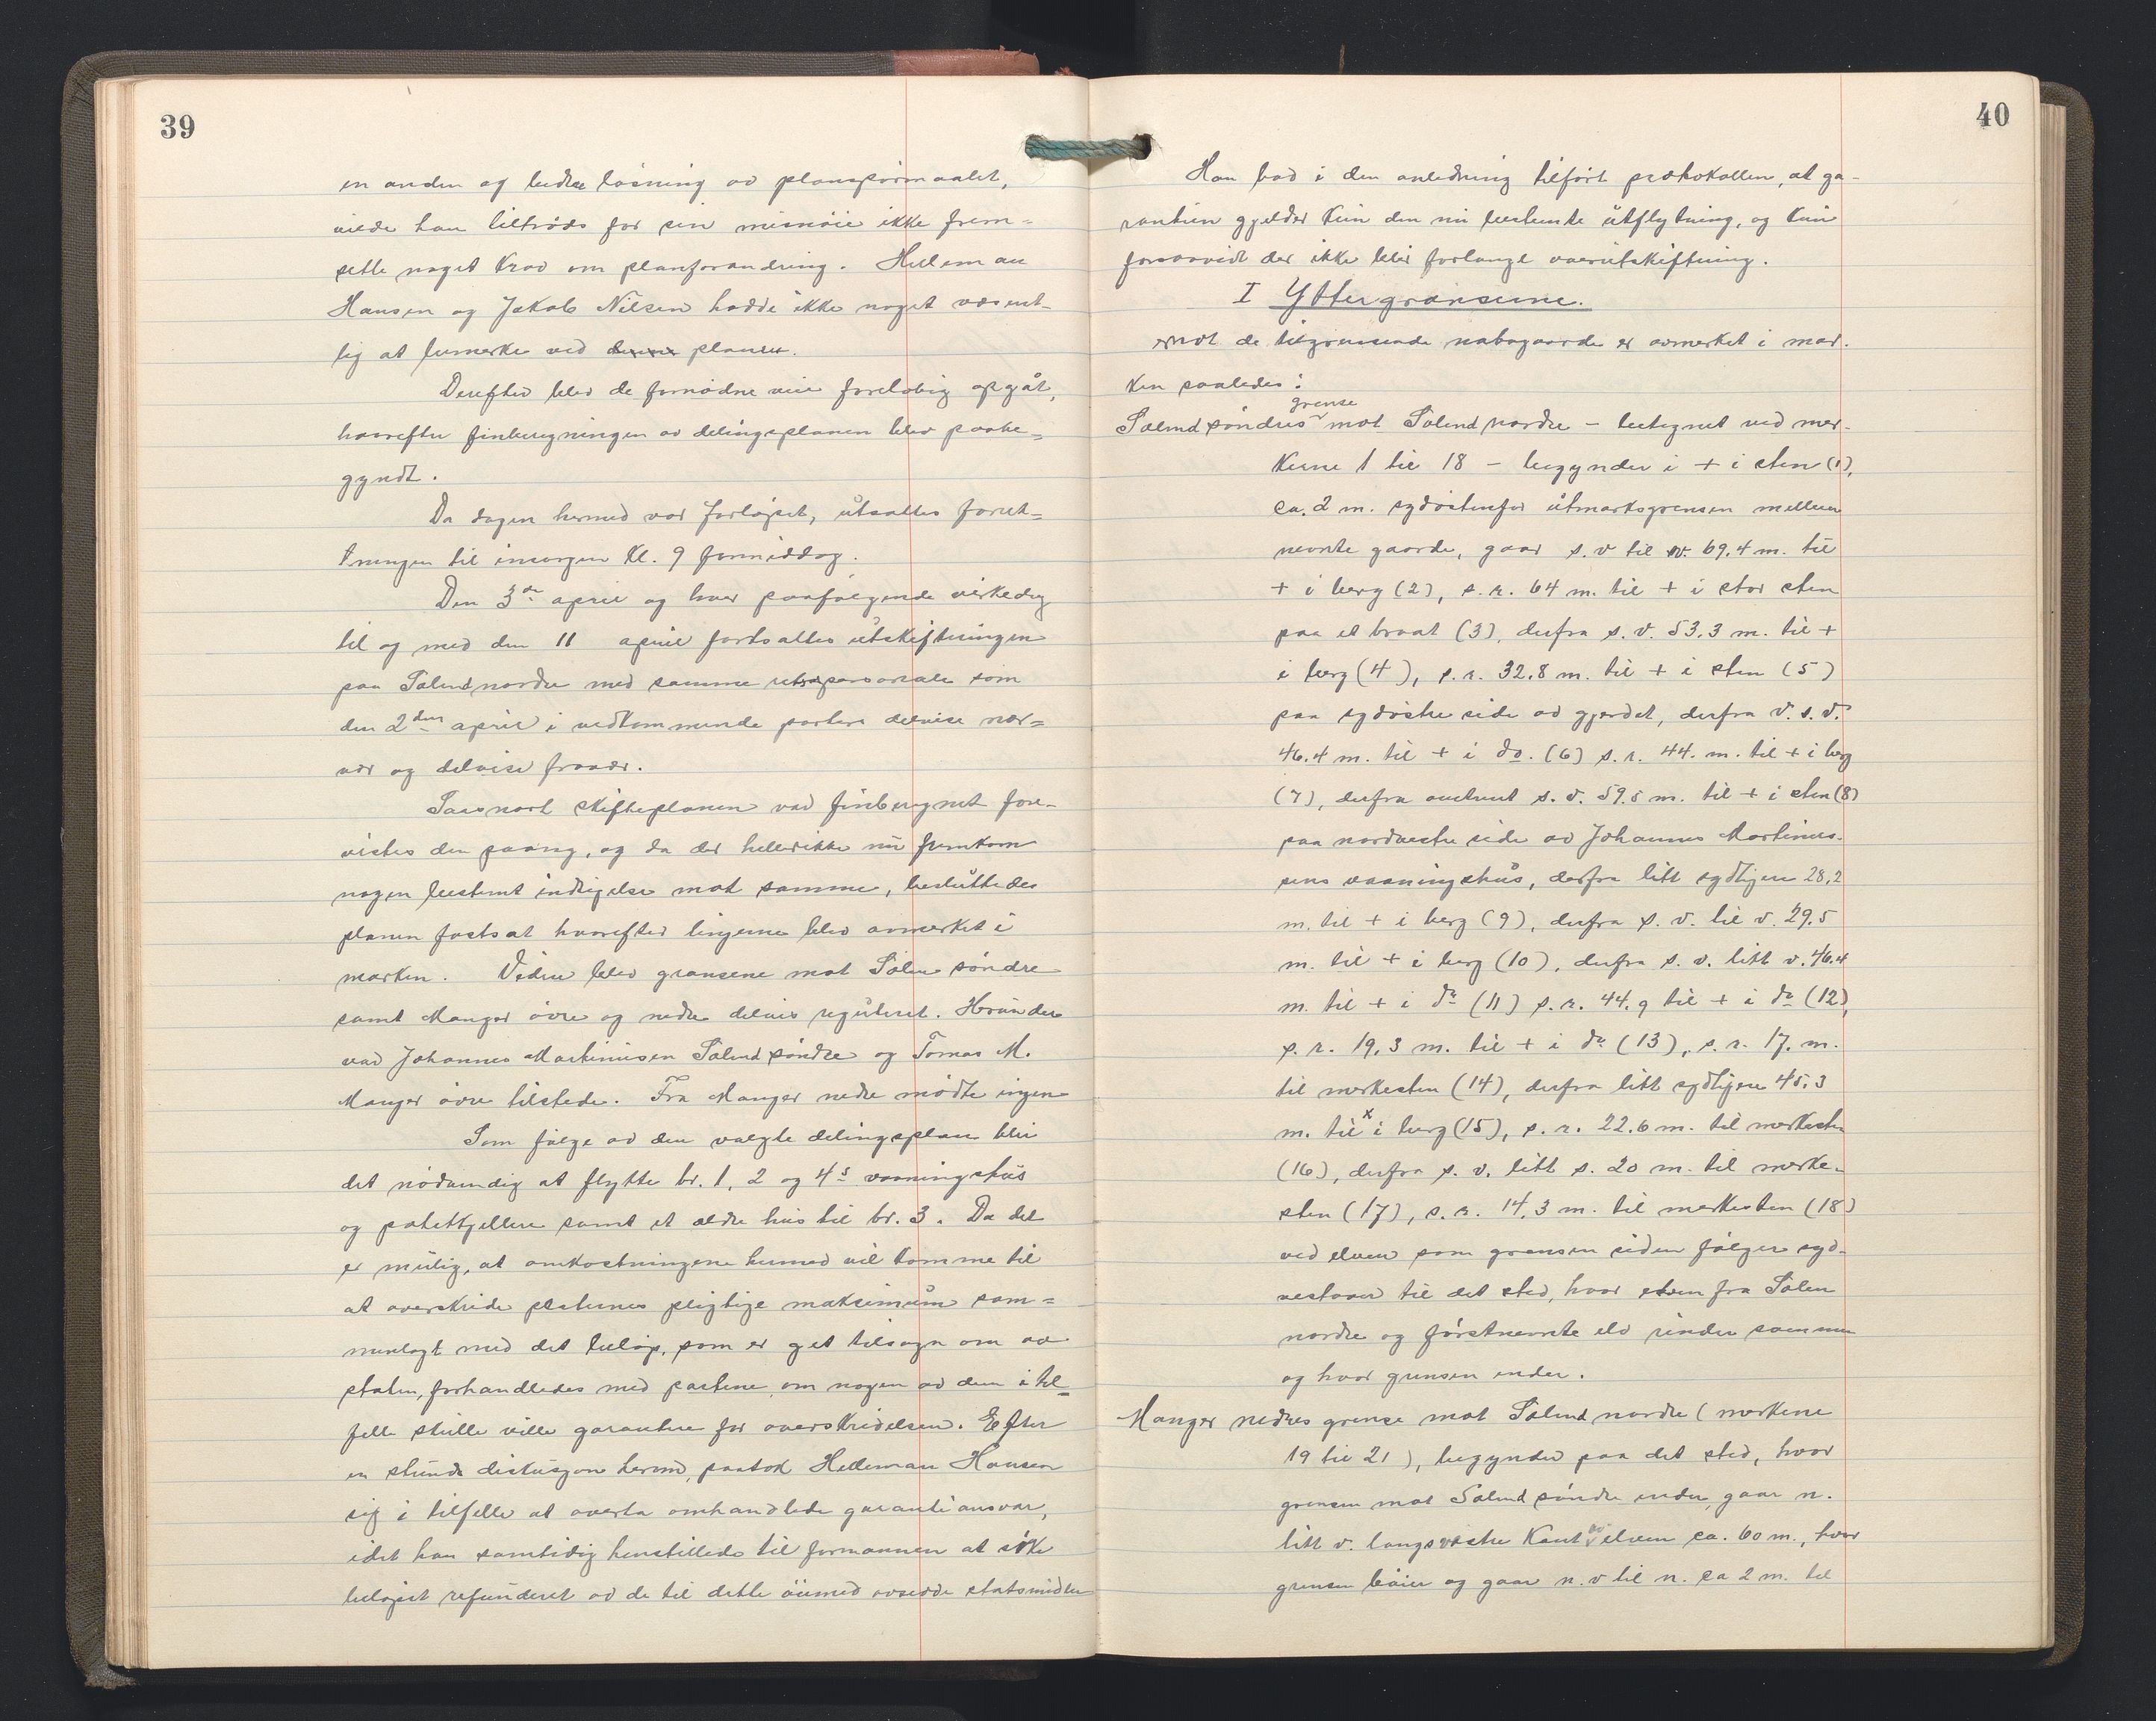 39
en anden og bedre løsning av planspørsmaalet,
vilde han tiltrods for sin misnøie ikke frem=
sette noget krav om planforandring. Helleman
Hansen og Jakob Nilsen hadde ikke noget væsent-
lig at bemerke ved denne planen.
Derefter blev de fornødne veie foreløbig opgåt,
hvorefter finberegningen av delingsplanen blev paabe=
gyndt.
Da dagen hermed var forløpet, utsattes forret=
tningen til imorgen kl. 9 formiddag.
Den 3de april og hver paafølgende virkedag
til og med den 11 april fortsattes utskiftningen
paa Sølendnordre med samme retspersonale som
den 2den april i vedkommende parters delvise nær=
vær og delvise fravær.
Saasnart skifteplanen var finberegnet fore-
vistes den paany, og da der hellerikke nu fremkom
nogen bestemt indsigelse mot samme, besluttedes
planen fastsat hvorefter linjerne blev avmerket i
marken. Videre blev grænsene mot Sølen søndre
samt Manger øvre og nedre delvis reguleret. Herunder
var Johannes Martinusen Sølend søndre og Tomas M.
Manger øvre tilstede. Fra Manger nedre mødte ingen
Som følge av den valgte delingsplan blir
det nødvendig at flytte br. 1, 2 og 4s vaaningshus
og potetkjellere samt et ældre hus til br. 3. Da det
er mulig, at omkostningene hermed vil komme til
at overskride parternes pligtige maksimum sam=
menlagt med det beløp, som er get tilsagn om av
staten, forhandledes med partene, om nogen av dem i til=
felle skulle ville garantere for overskridelsen. Efter
en stunds diskusjon herom, paatok Helleman Hansen
sig i tilfelle at overta omhandlede garantiansvar,
idet han samtidig henstillede til formannen at søke
beløpet refunderet av de til dette øiemed avsedde statsmidler
40
Han bad i den anledning tilført protokollen, at ga-
rantien gjelder kun den nu bestemte utflytning, og kun
forsaavidt der ikke blir forlangt overutskiftning.
I Yttergrænserne.
mot de tilgrænsende nabogaarde er avmerket i mar-
ken saaledes:
grense
Sølend søndres mot Sølend nordre - betegnet ved mer-
kerne 1 til 18 - begynder i + i sten (1),
ca. 2 m. sydøstenfor utmarksgrensen mellem
nevnte gaarde, gaar s.v til v. 69.4 m. til
+ i berg (2), s.r. 64 m. til + i stor sten
paa et braat (3), derfra s.v. 53.3 m. til +
i berg (4), s.r. 32.8 m. til + i sten (5)
paa sydøstre side av gjerdet, derfra v.s.v.
46.4 m. til + i do. (6) s.r. 44. m. til + i berg
(7), derfra omtrent s.v. 59.5 m. til + i sten (8)
paa nordvestre side av Johannes Martinus-
sens vaaningshus, derfra litt sydligere 28,2
m. til + i berg (9), derfra s.v. til v. 29.5
m. til + i berg (10), derfra s.v. litt v. 46.4
m. til + i do (11) s.r. 44.9 til + i do (12),
s.r. 19.3 m. til + i do (13), s.r. 17. m.
til merkesten (14), derfra litt sydligere 45,3
m. til x i berg (15), s.r. 22.6 m. til merkesten
(16), derfra s.v. litt s. 20 m. til merke-
sten (17), s.r. 14.3 m. til merkesten (18)
ved elven som grensen siden følger syd-
vestover til det sted, hvor elven fra Sølen
nordre og førstnevnte elv rinder sammen
og hvor grensen ender.
Manger nedres grense mot Sølend nordre (merkene
19 til 21), begynder paa det sted, hvor
grensen mot Sølend søndre ender, gaar n.
litt v. langs vestre kant av elven ca. 60 m., hvor
grensen bøier og gaar n.v til n. ca 2 m. til